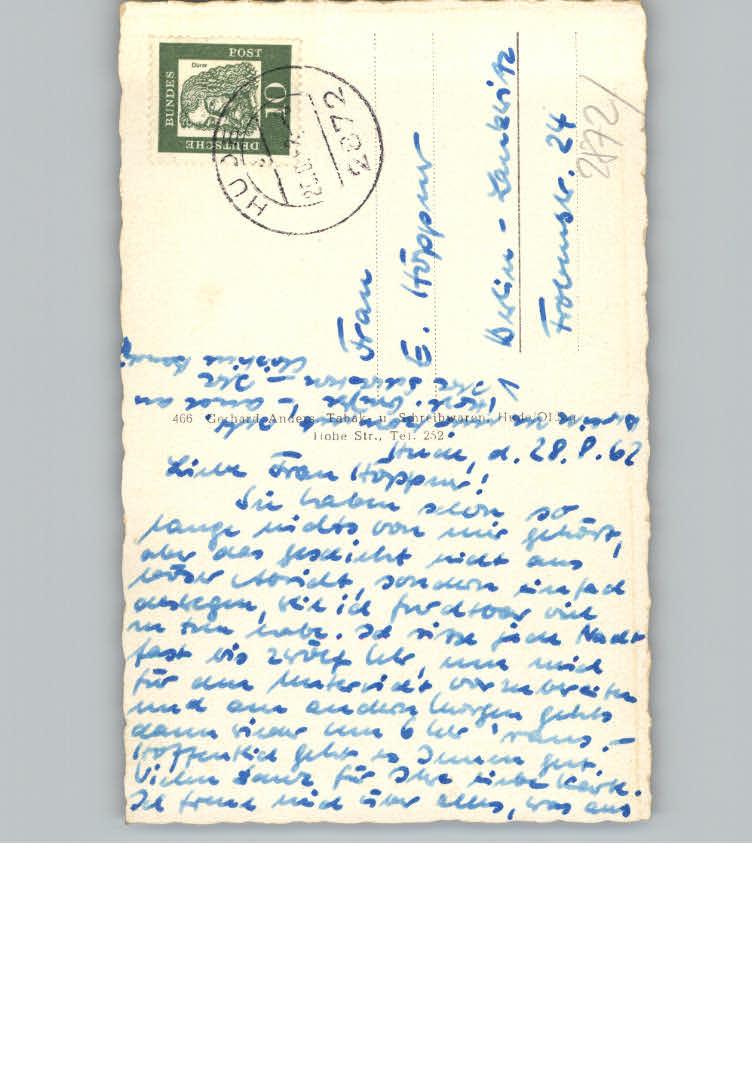 DEUTSCHE
BUNDES
POST
10
Dürer
HUDE
2872
2872/
Frau
E. Höppner
Berlin - Lankwitz
Frobenstr. 24
466 Gerhard Anders, Tabak u. Schreibwaren, Hude/Oldbg.
Hohe Str., Tel. 252
Hude, d. 28.8.62
Liebe Frau Höppner!
Sie haben schon so
lange nichts von mir gehört,
aber das geschieht nicht aus
böser Absicht, sondern einfach
deswegen, weil ich furchtbar viel
zu tun habe. Ich sitze jede Nacht
fast bis zwölf Uhr, um mich
für den Unterricht vorzubereiten
und am andern Morgen gehts
dann wieder um 6 Uhr 'raus. -
Hoffentlich geht es Ihnen gut.
Vielen Dank für Ihre liebe Karte.
Ich freue mich über alles, was aus